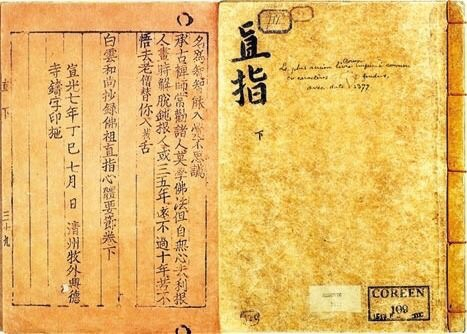 名爲無智能入 不思議
承古禪師常勸諸人莫學佛法但自無心去利根
人晝時解脫鈍根人或三五年遠不過十年若不
悟去老僧替你入 舌
白雲和尙抄錄佛祖直指心體要節卷下
宣光七年丁巳七月 日 淸州牧外興德
寺鑄字印施
直 下 三十九
直指
下
coréen
Le plus ancien livre imprimé connu
en caractères fondus,
avec date = 1377
COREEN
109